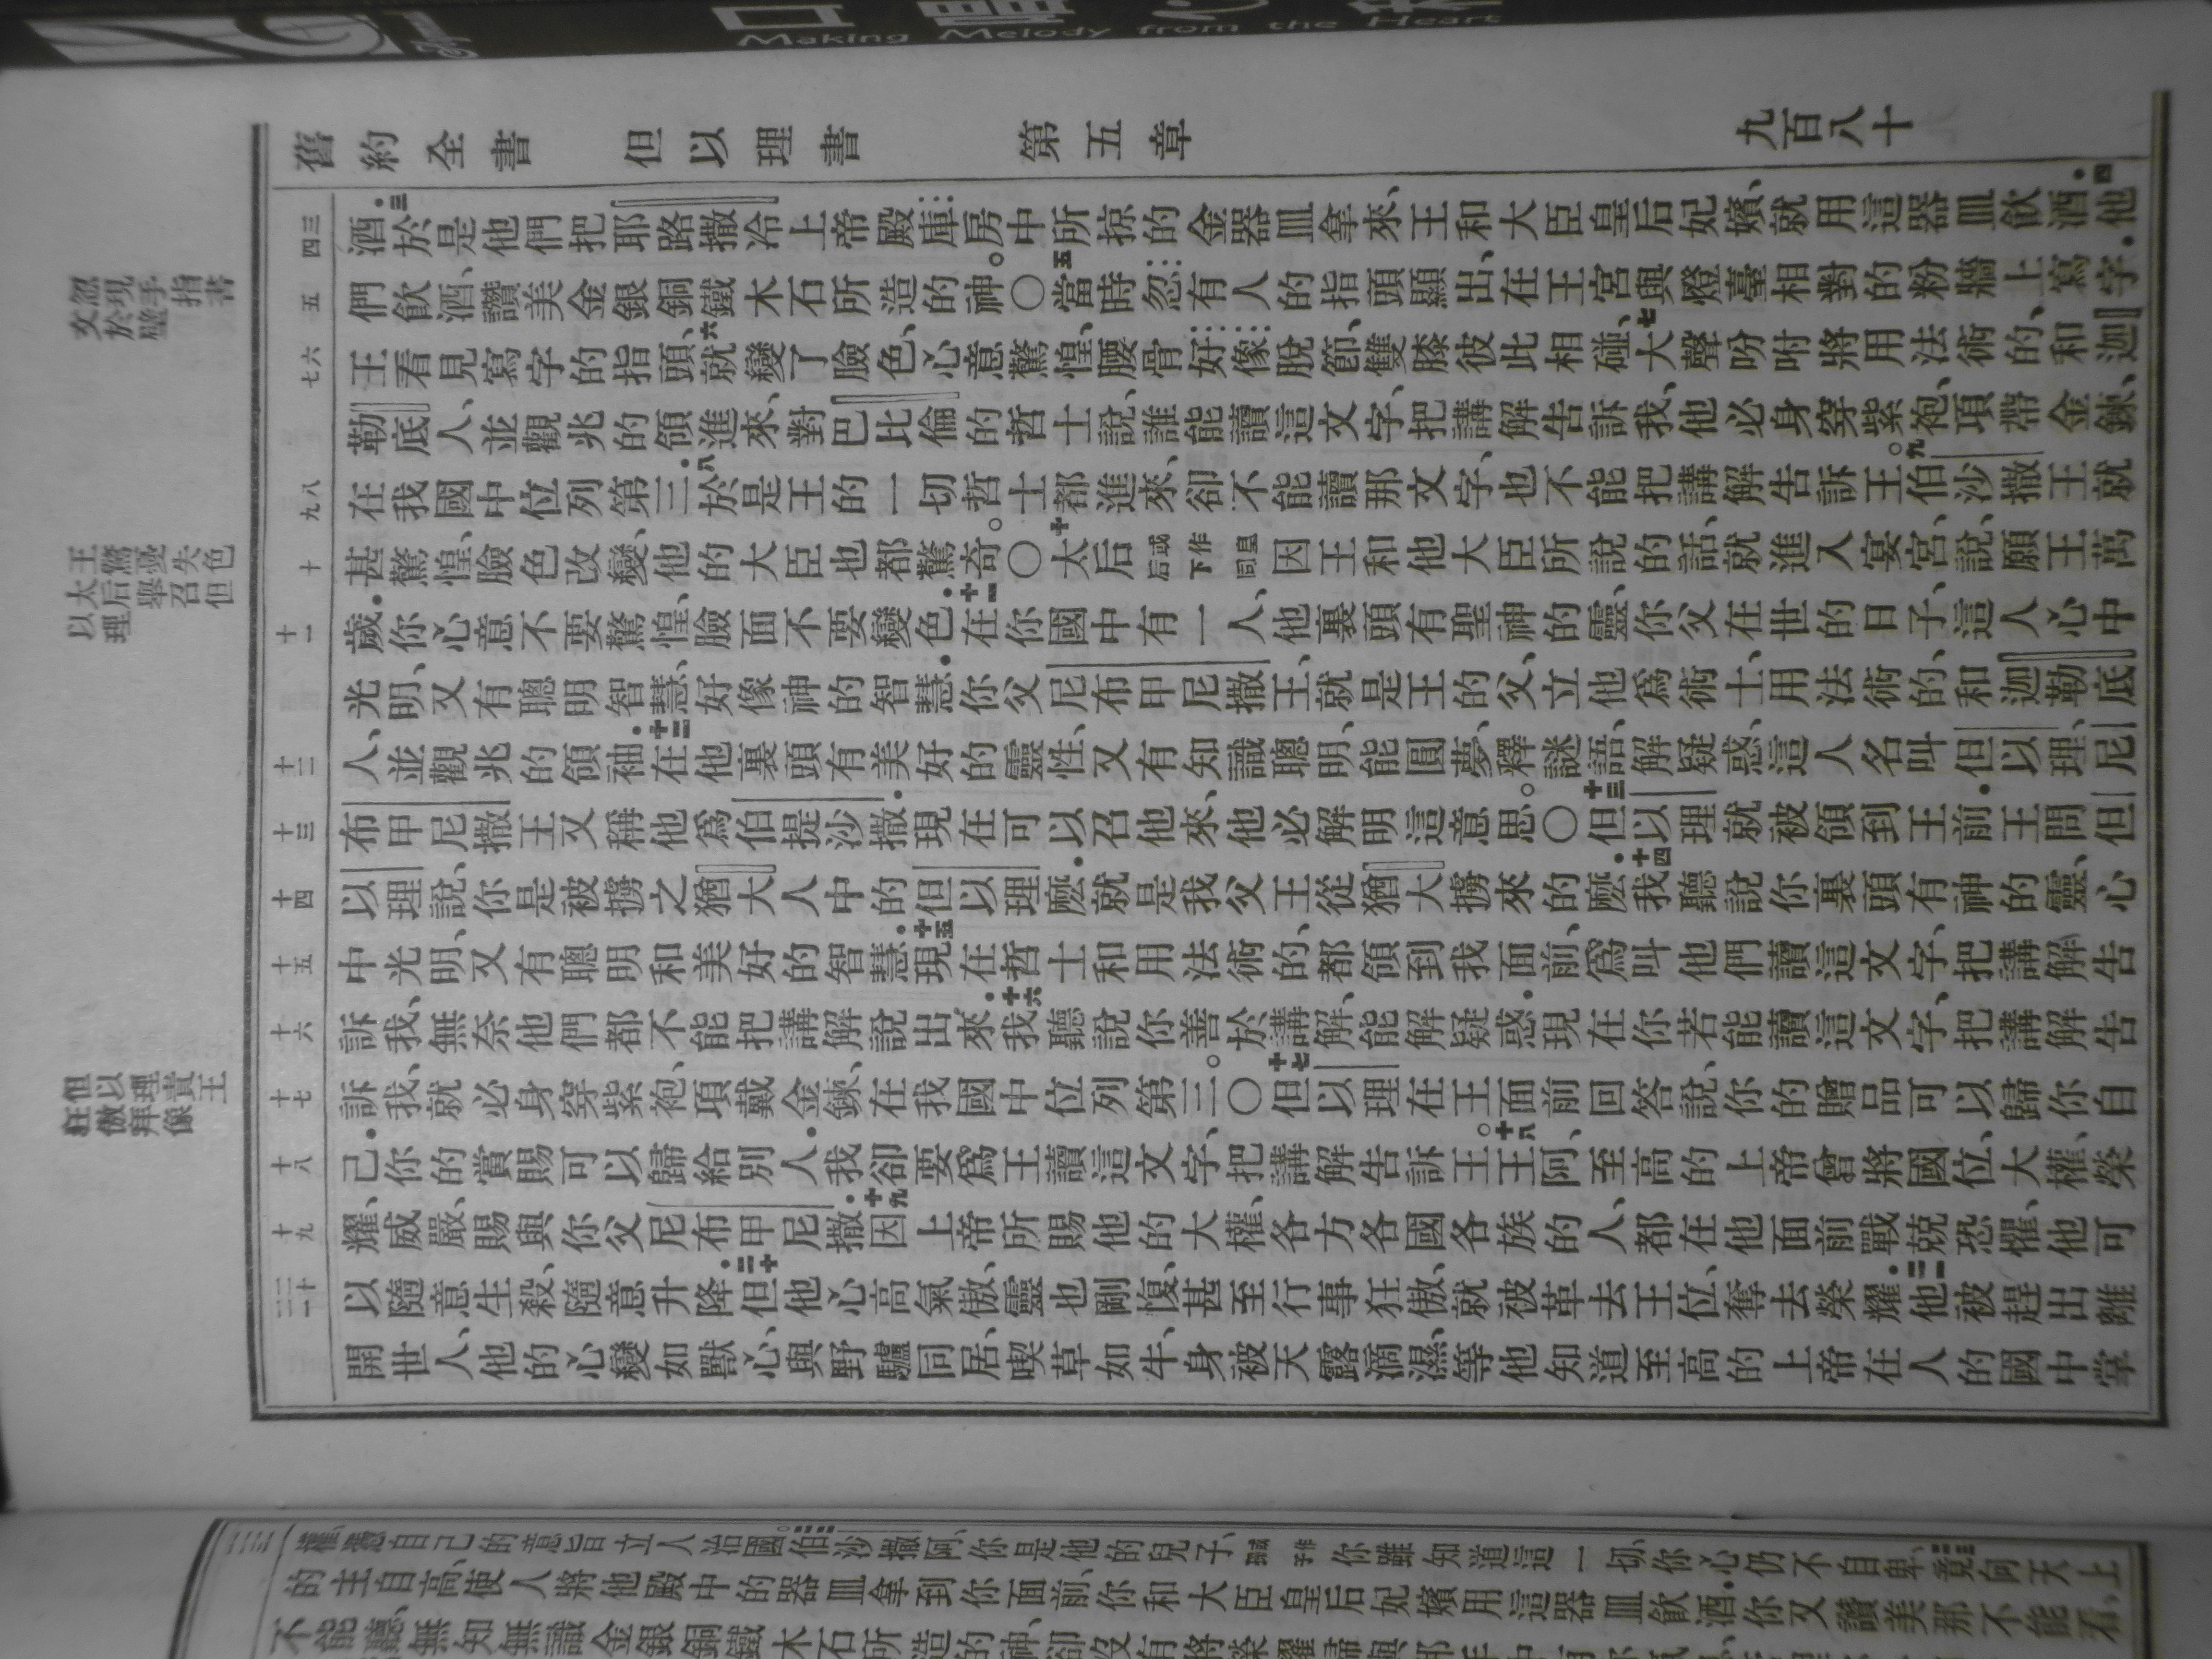 Making Melody from the Heart
舊約全書 但以理書 第五章 九百八十
三 四 五 六 七 八 九 十 十一 十二 十三 十四 十五 十六 十七 十八 十九 二十 二一
酒.三於是他們把耶路撒冷上帝殿庫房中所掠的金器皿拿來、王和大臣皇后妃嬪、就用這器皿飲酒.四他
們飲酒、讚美金銀銅鐵木石所造的神。〇五當時忽有人的指頭顯出、在王宮與燈臺相對的粉牆上寫字.
王看見寫字的指頭、六就變了臉色、心意驚惶、腰骨好像脫節、雙膝彼此相碰、七大聲吩咐將用法術的、和迦
勒底人、並觀兆的領進來、對巴比倫的哲士說、誰能讀這文字、把講解告訴我、他必身穿紫袍、項帶金鍊、
在我國中位列第三.八於是王的一切哲士都進來、卻不能讀那文字、也不能把講解告訴王。九伯沙撒王就
甚驚惶、臉色改變、他的大臣也都驚奇。〇十太后或作皇后下同因王和他大臣所說的話、就進入宴宮、說、願王萬
歲.你心意不要驚惶、臉面不要變色.十一在你國中有一人、他裏頭有聖神的靈、你父在世的日子、這人心中
光明、又有聰明智慧、好像神的智慧.你父尼布甲尼撒王、就是王的父、立他爲術士、用法術的、和迦勒底
人、並觀兆的領袖.十二在他裏頭有美好的靈性、又有知識聰明、能圓夢、釋謎語、解疑惑、這人名叫但以理、尼
布甲尼撒王又稱他爲伯提沙撒.現在可以召他來、他必解明這意思。〇十三但以理就被領到王前.王問但
以理說、你是被擄之猶大人中的但以理麽.就是我父王從猶大擄來的麽.十四我聽說你裏頭有神的靈、心
中光明、又有聰明和美好的智慧.十五現在哲士和用法術的、都領到我面前、爲叫他們讀這文字、把講解告
訴我、無奈他們都不能把講解說出來.十六我聽說你善於講解、能解疑惑.現在你若能讀這文字、把講解告
訴我、就必身穿紫袍、項戴金鍊、在我國中位列第三。〇十七但以理在王面前回答說、你的贈品可以歸你自
己.你的賞賜可以歸給別人.我卻要爲王讀這文字、把講解告訴王。十八王阿、至高的上帝曾將國位、大權、榮
耀、威嚴、賜與你父尼布甲尼撒.十九因上帝所賜他的大權、各方各國各族的人、都在他面前戰兢恐懼、他可
以隨意生殺、隨意升降.二十但他心高氣傲、靈也剛愎、甚至行事狂傲、就被革去王位、奪去榮耀.二一他被趕出離
開世人、他的心變如獸心、與野驢同居、喫草如牛、身被天露滴濕、等他知道至高的上帝在人的國中掌
忽現手指書
文於壁
王驚憂失色
太后舉召但
以理
但以理責王
狂傲拜像
權、憑自己的意旨立人治國。伯沙撒阿、你是他的兒子、或作孫子你雖知道這一切、你心仍不自卑、竟向天上
的主自高、使人將他殿中的器皿拿到你面前、你和大臣皇后妃嬪用這器皿飲酒.你又讚美那不能看、
不能聽、無知無識金銀銅鐵木石所造的神、卻沒有將榮耀歸與那手中有你氣息